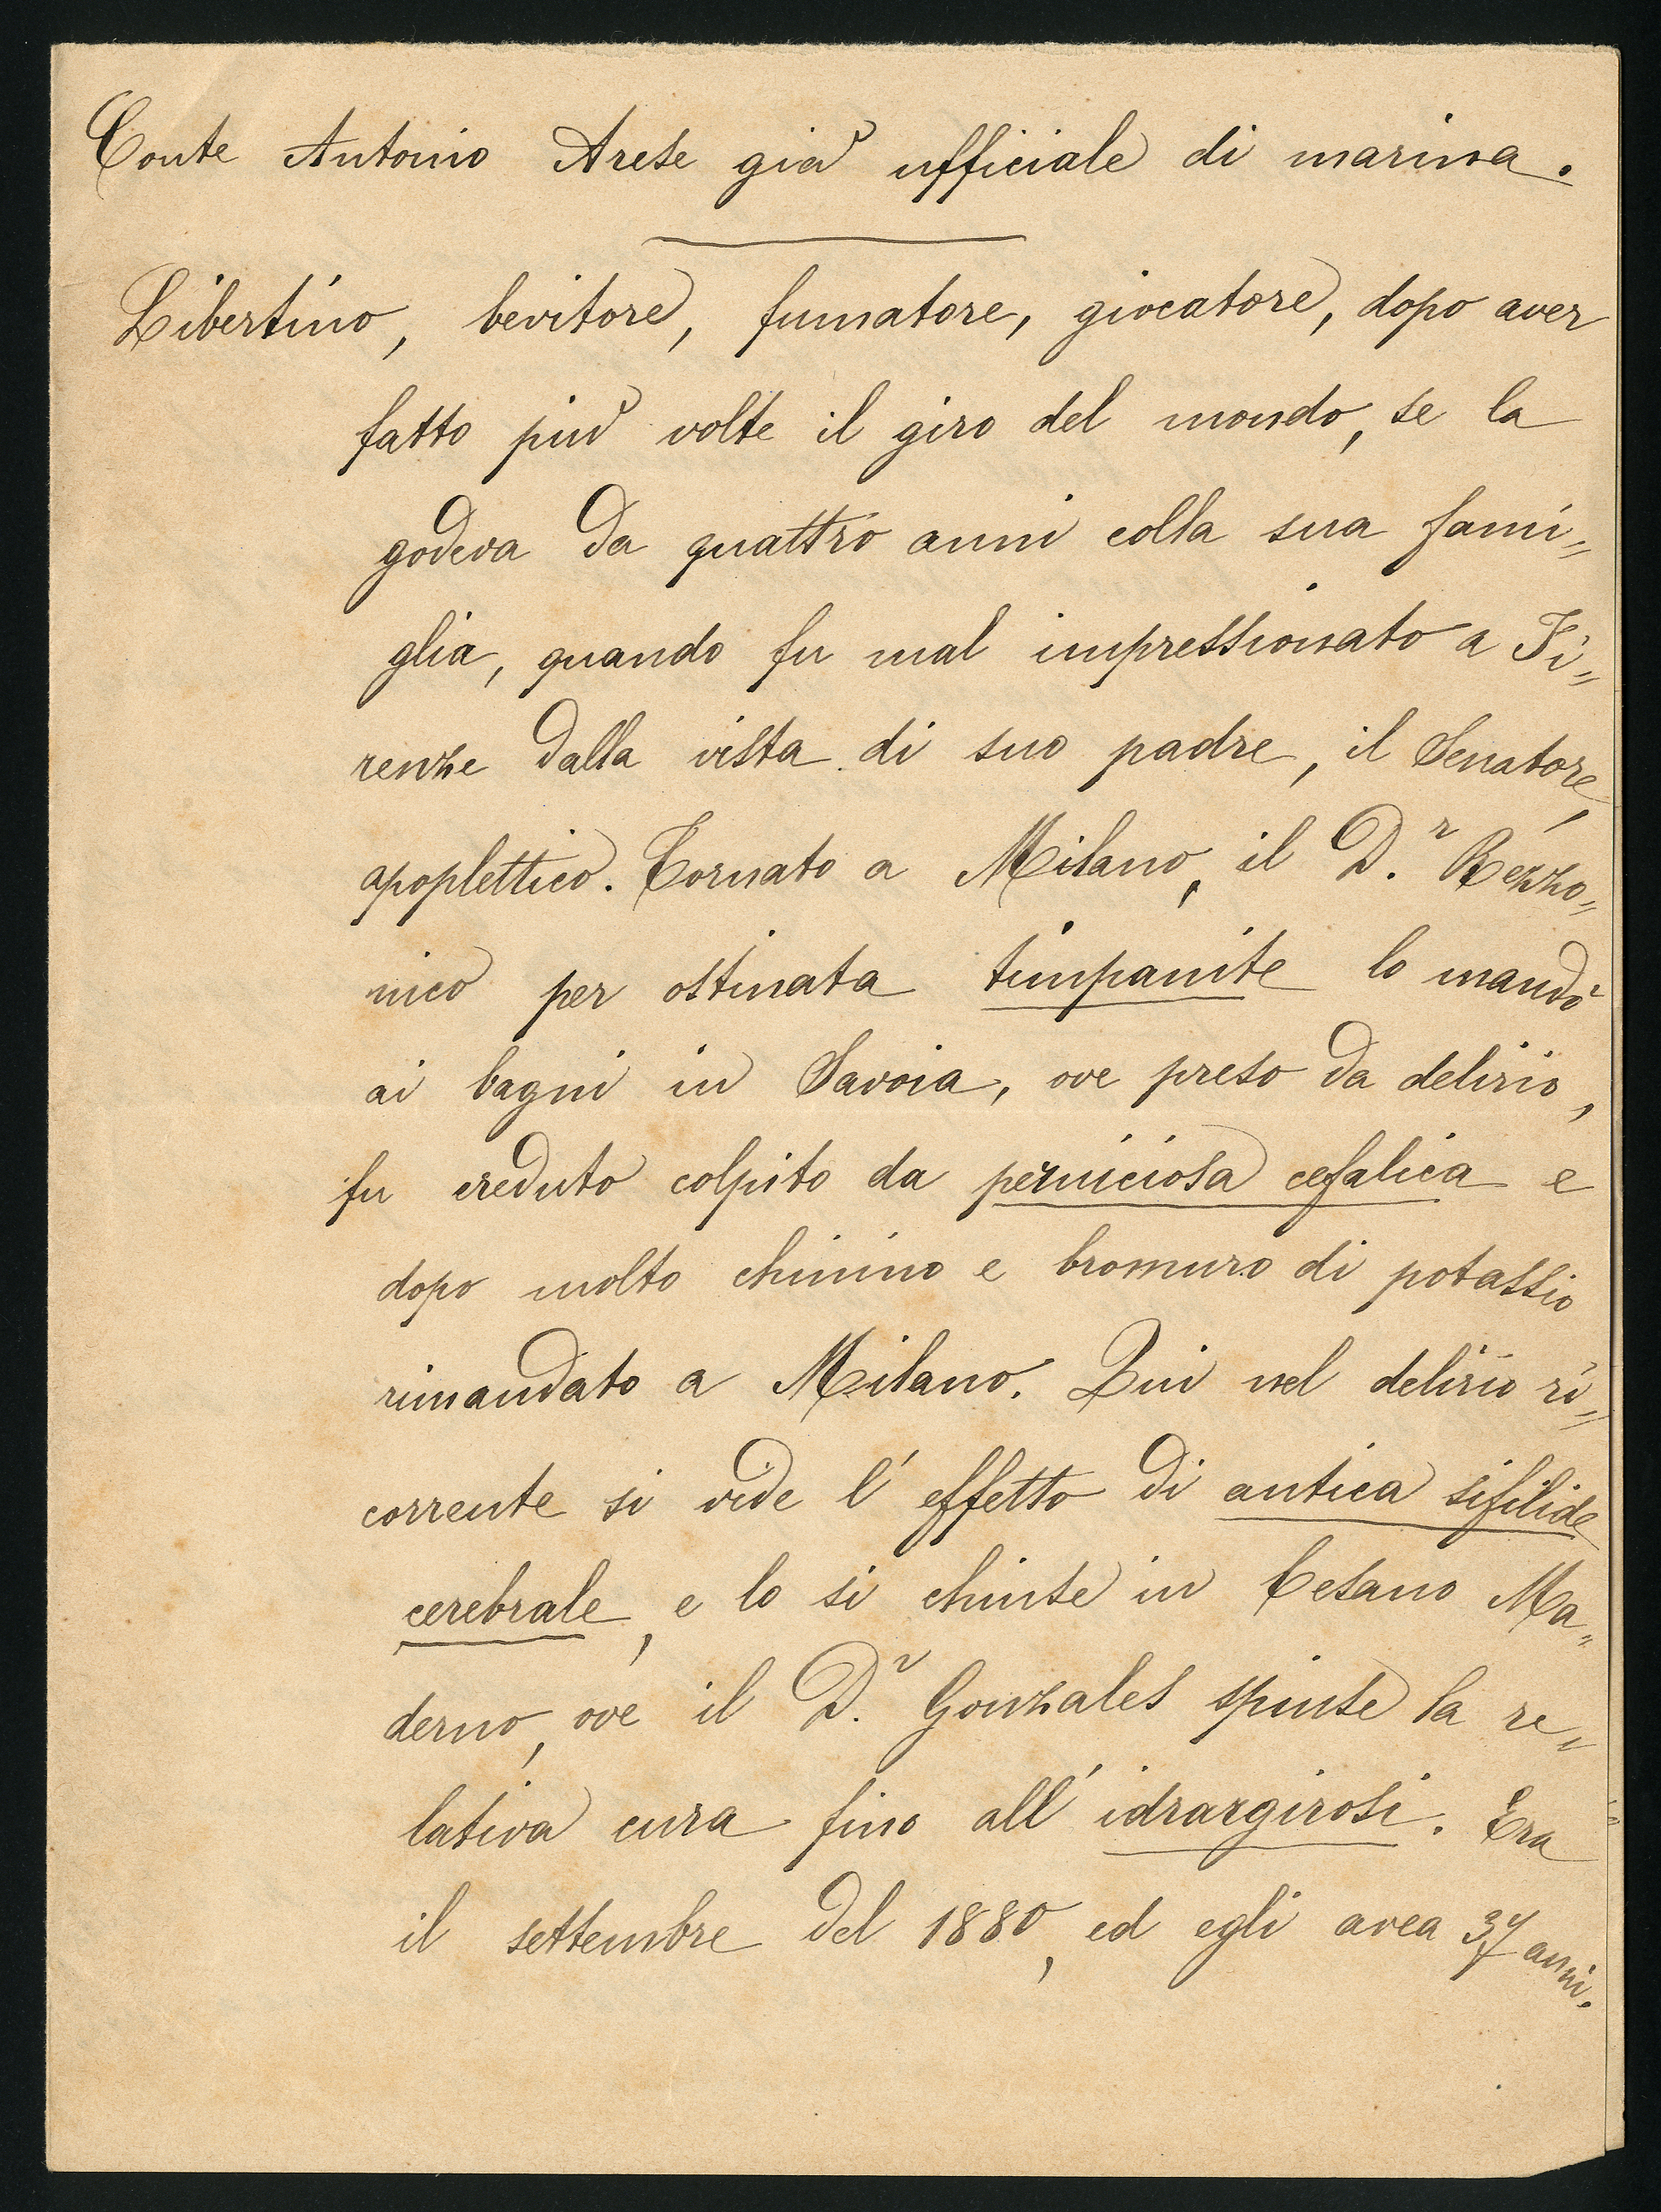 Conte Antonio Arese già ufficiale di marina.
Libertino, bevitore, fumatore, giocatore, dopo aver
fatto più volte il giro del mondo, se la
godeva da quattro anni colla sua fami=
glia, quando fu mal impressionato a Fi=
renze dalla vista di suo padre, il Senatore,
apoplettico. Tornato a Milano, il D.r Rezzo=
nico per ostinata timpanite lo mandò
ai bagni in Savoia, ove preso da delirio,
fu creduto colpito da perniciosa cefalica e
dopo molto chinino e bromuro di potassio
rimandato a Milano. Qui nel delirio ri=
corrente si vide l'effetto di antica sifilide
cerebrale, e lo si chiuse in Cesano Ma=
derno, ove il D.r Gonzales spinse la re=
lativa cura fino all'idrargirosi. Era
il settembre del 1880, ed egli avea 37 anni.